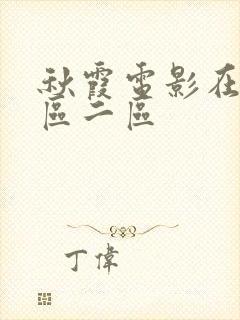 秋霞電影在
區二區
丁偉